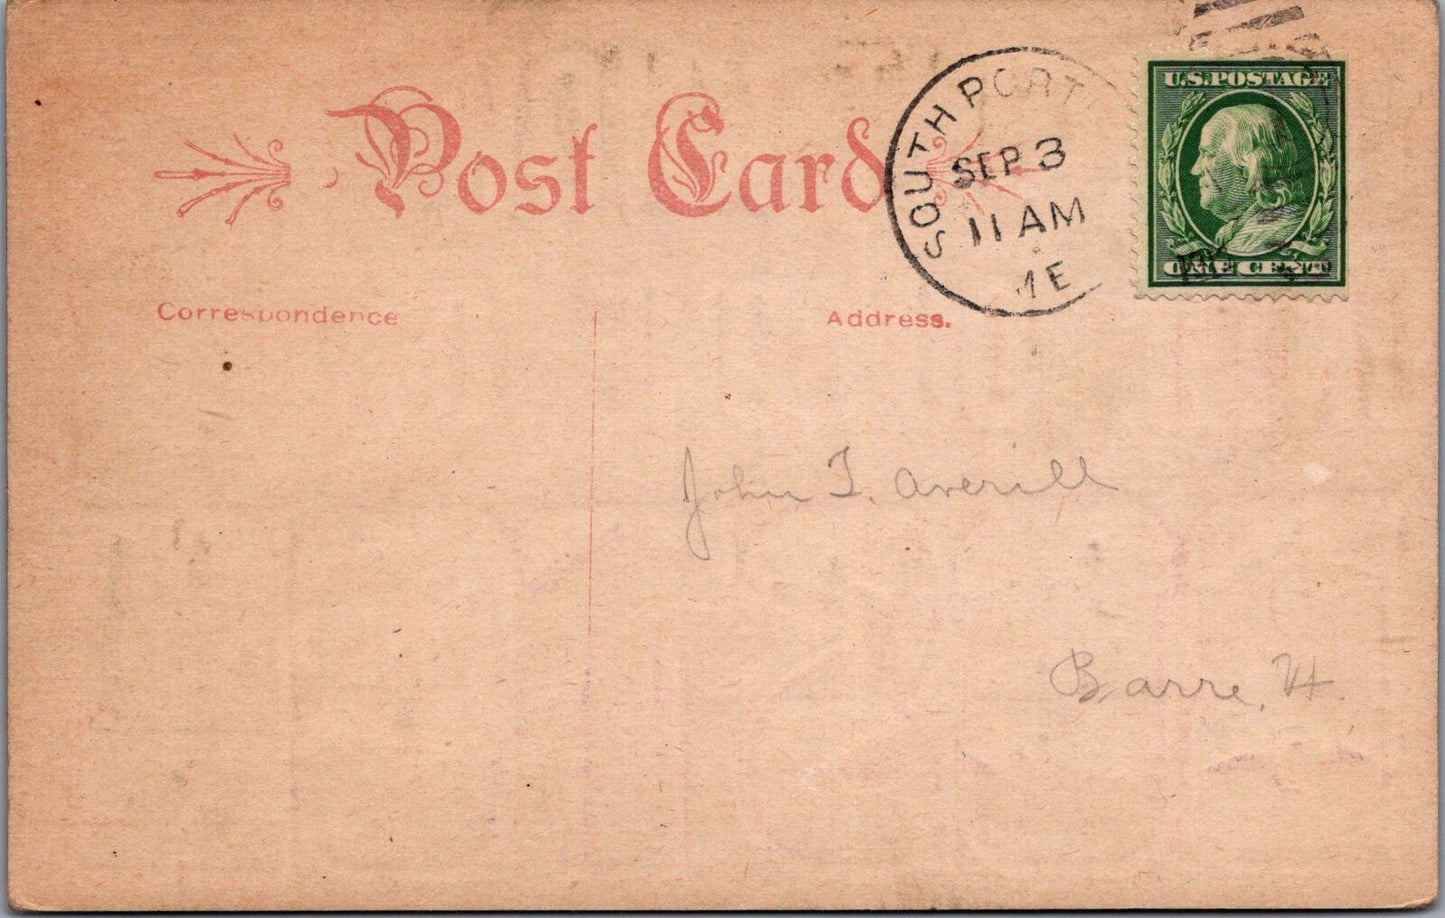 Post Card
SOUTH PORT
SEP 3
11 AM
ME
U.S. POSTAGE
ONE CENT
Correspondence
Address.
John T. Averill
Barre, Vt.